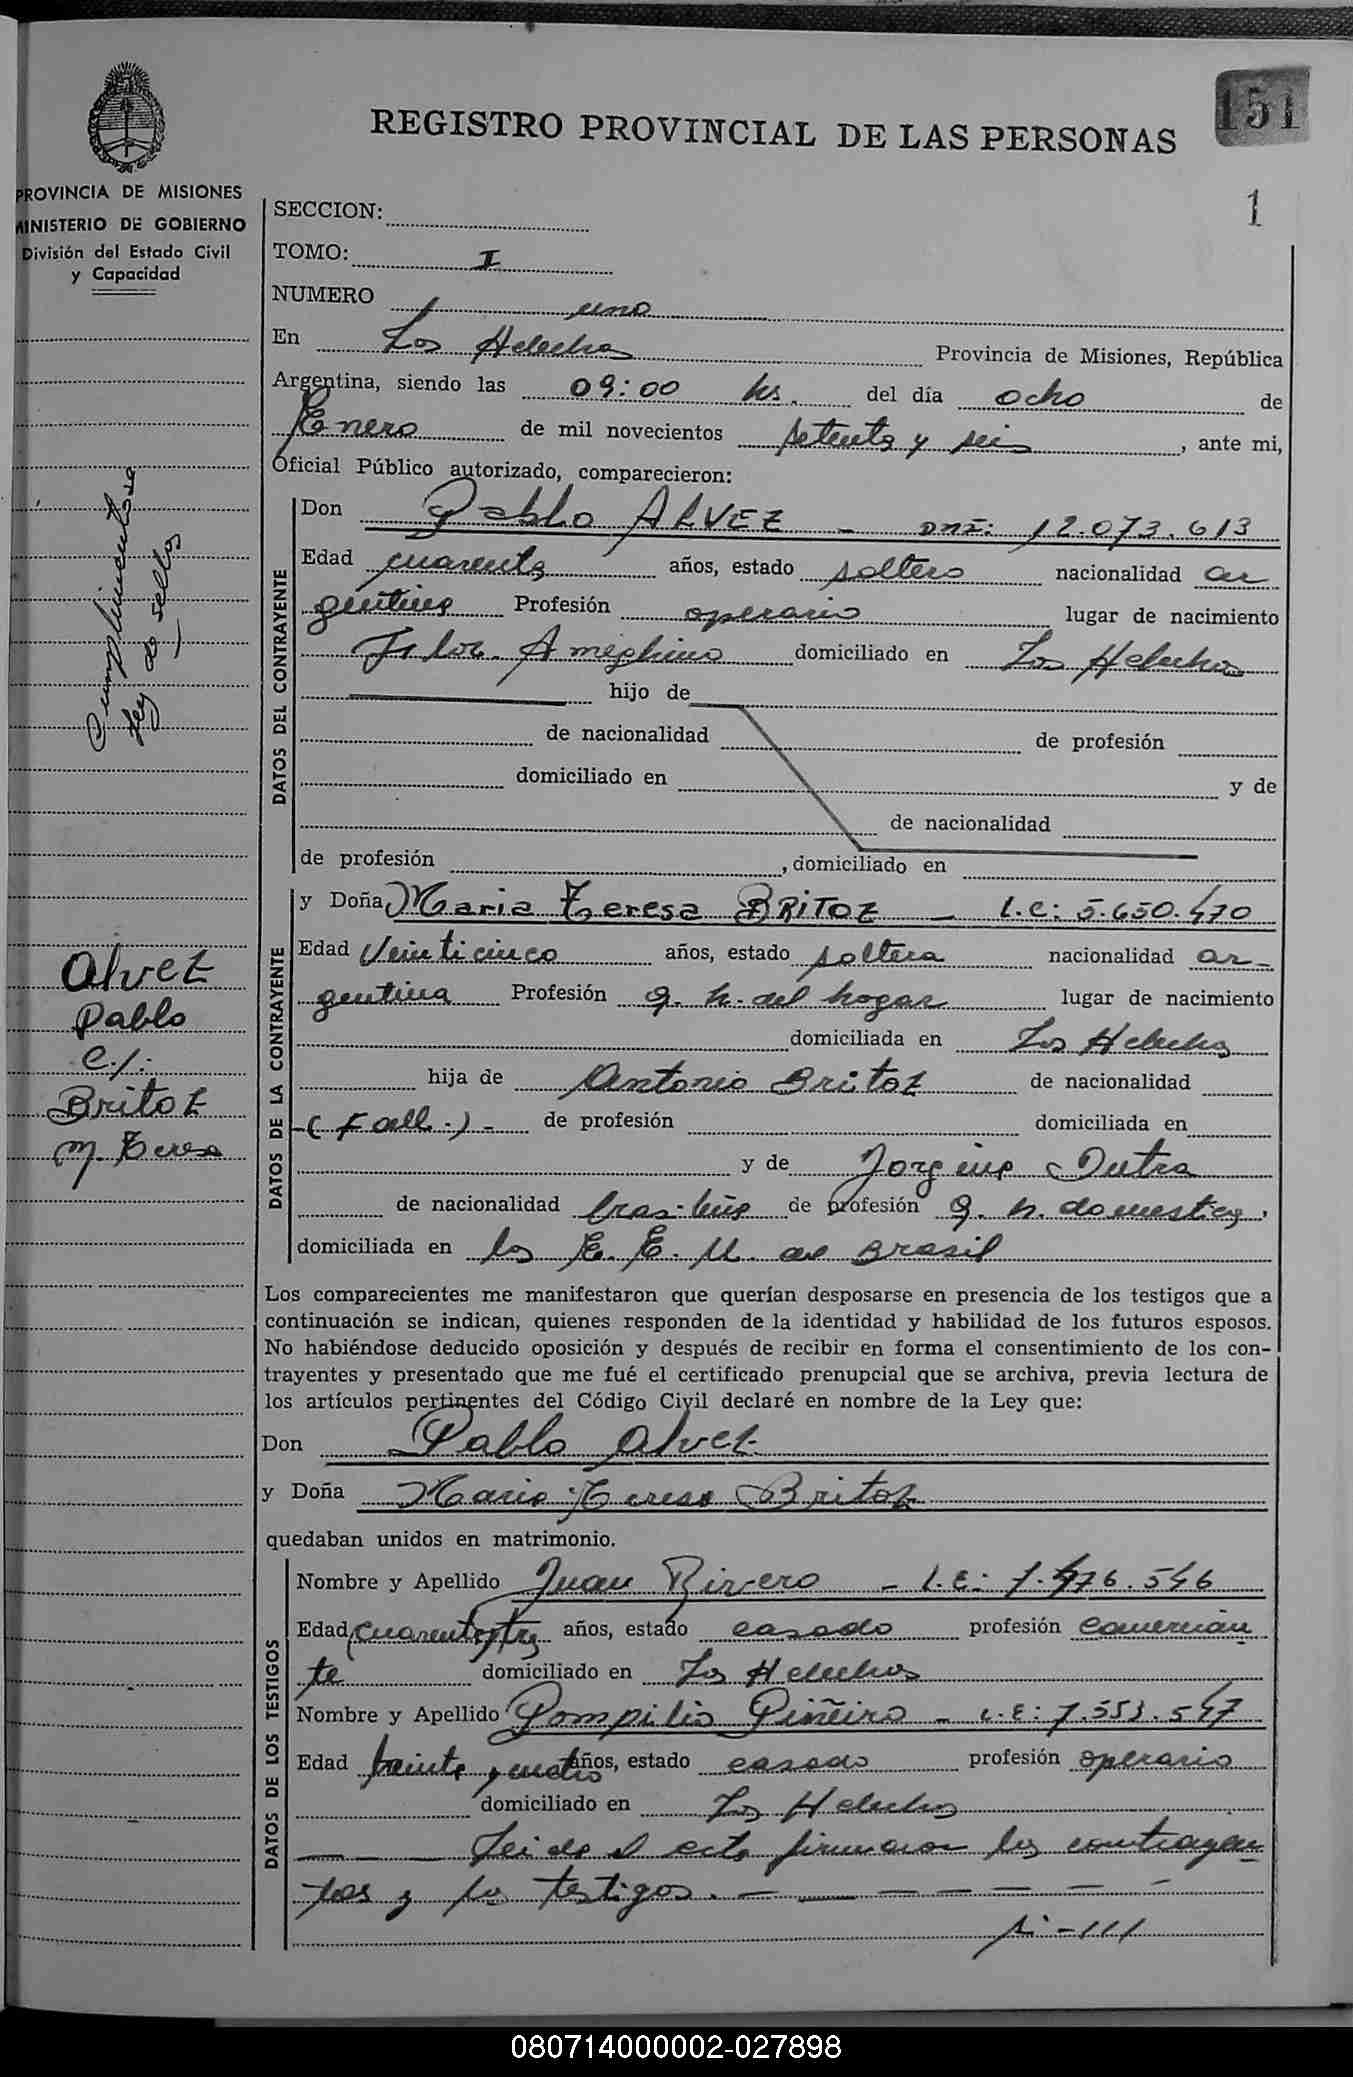 151
REGISTRO PROVINCIAL DE LAS PERSONAS
1
PROVINCIA DE MISIONES
MINISTERIO DE GOBIERNO
División del Estado Civil
y Capacidad
Cumplimentose
ley de sellos
Alvez
Pablo
c/:
Britoz
M. Teresa
SECCION:
TOMO: I
NUMERO uno
En Los Helechos Provincia de Misiones, República
Argentina, siendo las 09:00 hs. del día ocho de
Enero de mil novecientos setenta y seis, ante mi,
Oficial Público autorizado, comparecieron:
DATOS DEL CONTRAYENTE
Don Pablo ALVEZ - DNI: 12.073.613
Edad cuarenta años, estado soltero nacionalidad ar
gentina Profesión operario lugar de nacimiento
Flor. Ameghino domiciliado en Los Helechos
hijo de
de nacionalidad de profesión
domiciliado en y de
de nacionalidad
de profesión , domiciliado en
DATOS DE LA CONTRAYENTE
y Doña Maria Teresa BRITOZ - L.C: 5.650.470
Edad Veinticinco años, estado soltera nacionalidad ar-
gentina Profesión q. h. del hogar lugar de nacimiento
domiciliada en Los Helechos
hija de Antonio Britoz de nacionalidad
-(Fall.)- de profesión domiciliada en
y de Jorgina Dutra
de nacionalidad brasileña de profesión q. h. domestica,
domiciliada en los E. E. U. de Brasil
Los comparecientes me manifestaron que querían desposarse en presencia de los testigos que a
continuación se indican, quienes responden de la identidad y habilidad de los futuros esposos.
No habiéndose deducido oposición y después de recibir en forma el consentimiento de los con-
trayentes y presentado que me fué el certificado prenupcial que se archiva, previa lectura de
los artículos pertinentes del Código Civil declaré en nombre de la Ley que:
Don Pablo Alvez
y Doña Maria Teresa Britoz
quedaban unidos en matrimonio.
DATOS DE LOS TESTIGOS
Nombre y Apellido Juan Rivero - L.E: 7.476.546
Edad cuarenta y tres años, estado casado profesión comercian
te domiciliado en Los Helechos
Nombre y Apellido Pompilio Piñeiro - L.E: 7.553.547
Edad treinta y cuatro años, estado casado profesión operario
domiciliado en Los Helechos
Leida el acta firmaron los contrayen
tes y los testigos.
080714000002-027898